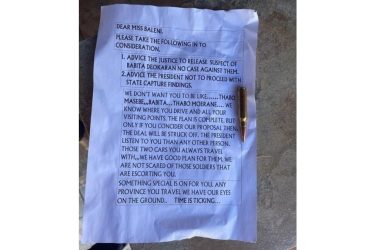 DEAR MISS BALENI,
PLEASE TAKE THE FOLLOWING IN TO
CONSIDERATION.
1. ADVICE THE JUSTICE TO RELEASE SUSPECT OF
BABITA DEOKARAN NO CASE AGAINST THEM.
2. ADVICE THE PRESIDENT NOT TO PROCEED WITH
STATE CAPTURE FINDINGS.
WE DON'T WANT YOU TO BE LIKE.......THABO
MASEBE,....BABITA....THABO MOERANE..... WE
KNOW WHERE YOU DRIVE AND ALL YOUR
VISITING POINTS. THE PLAN IS COMPLETE, BUT
ONLY IF YOU CONCIDER OUR PROPOSAL THEN
THE DEAL WILL BE STRUCK OFF. THE PRESIDENT
LISTEN TO YOU THAN ANY OTHER PERSON.
THOSE TWO CARS YOU ALWAYS TRAVEL
WITH,,, WE HAVE GOOD PLAN FOR THEM, WE
ARE NOT SCARED OF THOSE SOLDIERS THAT
ARE ESCORTING YOU.
SOMETHING SPECIAL IS ON FOR YOU, ANY
PROVINCE YOU TRAVEL WE HAVE OUR EYES
ON THE GROUND.. TIME IS TICKING....